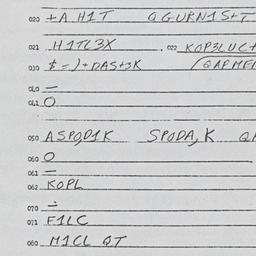 020 +A H1T QGURN1S+T
021 H1TL3X . 022 KOP3LUC+
030 $=)+DAS+3K (QAPMF
0L0 —
0L1 O
050 ASPQD1K SPODA,K QA
060 O
061 —
062 KOPL
070 ∸
071 F1LC
080 M1CL QT